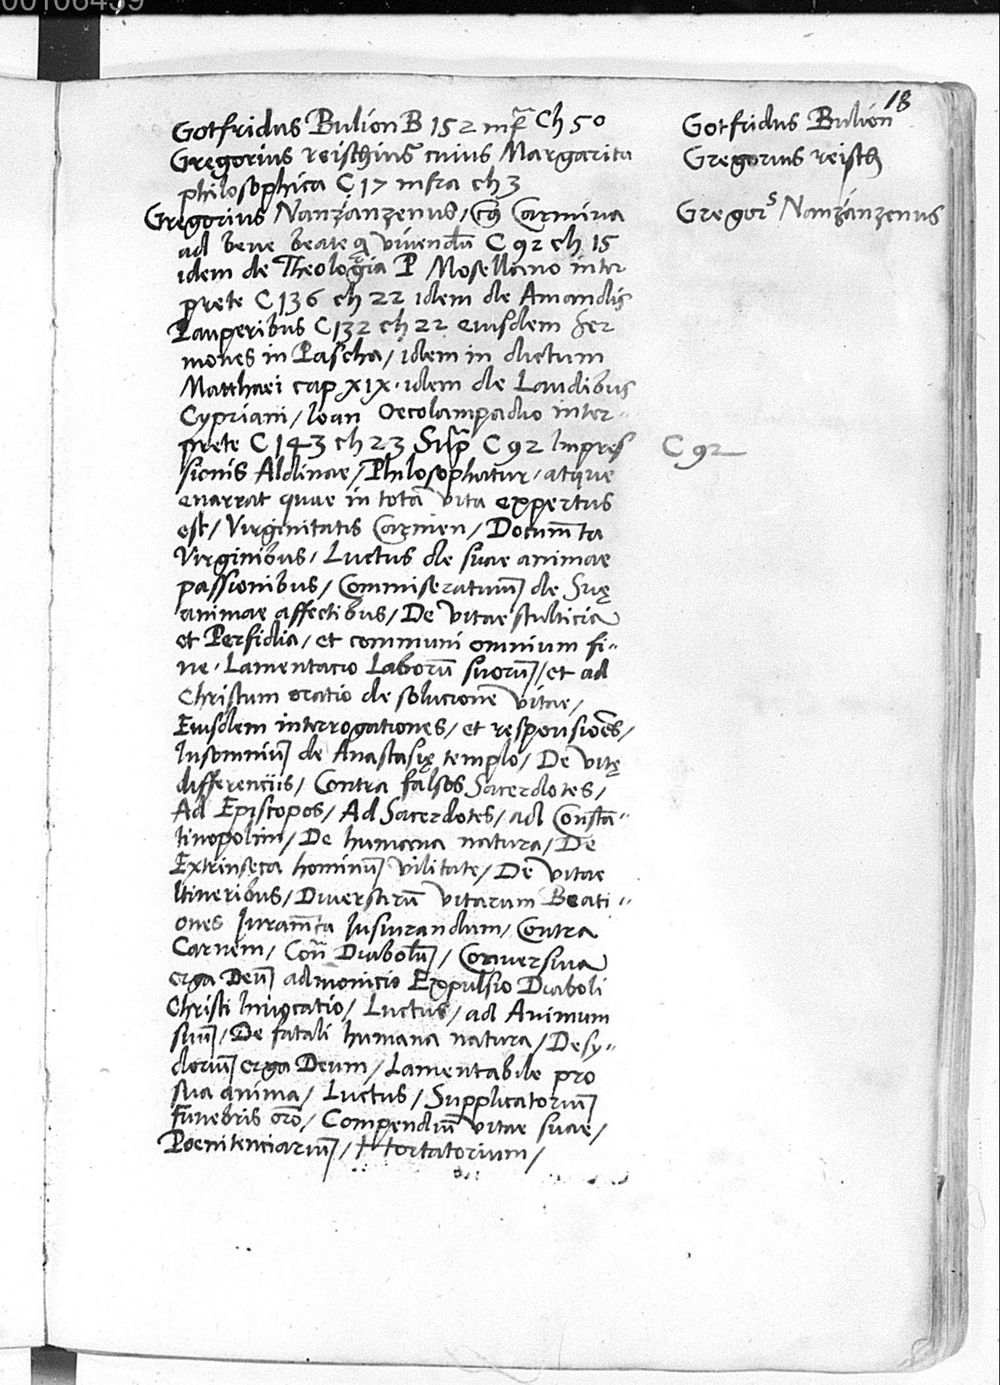 00106459
18
Gotfridus Bulion B 152 inf̃ Ch 50
Gotfridus Bulion
Gregorius reischius cuius Margarita
Gregorius reisch
philosophica C 17 infra ch 3
Gregorius Nanzanzenus / Carmina
Gregorˢ Nanzanzenus
ad bene beate vivendū C 92 ch 15
idem de Theologia P Mosellano inter
prete C 136 ch 22 idem de Amandis
Pauperibus C 132 ch 22 eiusdem Ser
mones in Pascha / idem in dictum
Matthaei cap XIX · idem de Laudibus
Cypriani / Ioan Oecolampadio inter-
prete C 143 ch 23 Sup̃ C 92 Impres
C 92
sionis Aldinae / Philosophatur · atque
enarrat quae in totā vita expertus
est / Virginitatis Carmen / Documīta
Virginibus / Luctus de suae animae
passionibus / Commiseratiuū de Suę
animae affectibus / De vitae stulticia
et Perfidia / et communi omnium fi-
ne · Lamentacio Laborū suorū / et ad
Christum oratio de solucionē vitae /
Eiusdem interrogationes / et responsiões /
Insomniū de Anastasię templo / De vitę
differenciis / Contra falsos Sacerdotes /
Ad Episcopos / Ad Sacerdotes / ad Constā-
tinopolim / De humana natura / De
Extrinseca hominū vilitate / De vitae
Itineribus / Diversarū vitarum Beati-
ones Iuramēta Iusiurandum / Contra
Carnem / Con̄ Diabolū / Conversiua
erga Deū admonicio Expulsio Diaboli
Christi Invocatio / Luctus / ad Animum
suū / De fatali humana natura / Desy-
deriū erga Deum / Lamentabile pro
sua anima / Luctus / Supplicatoriū
Funebris orō / Compendiū vitae suae /
Poenitenciariū / Hortatorium /